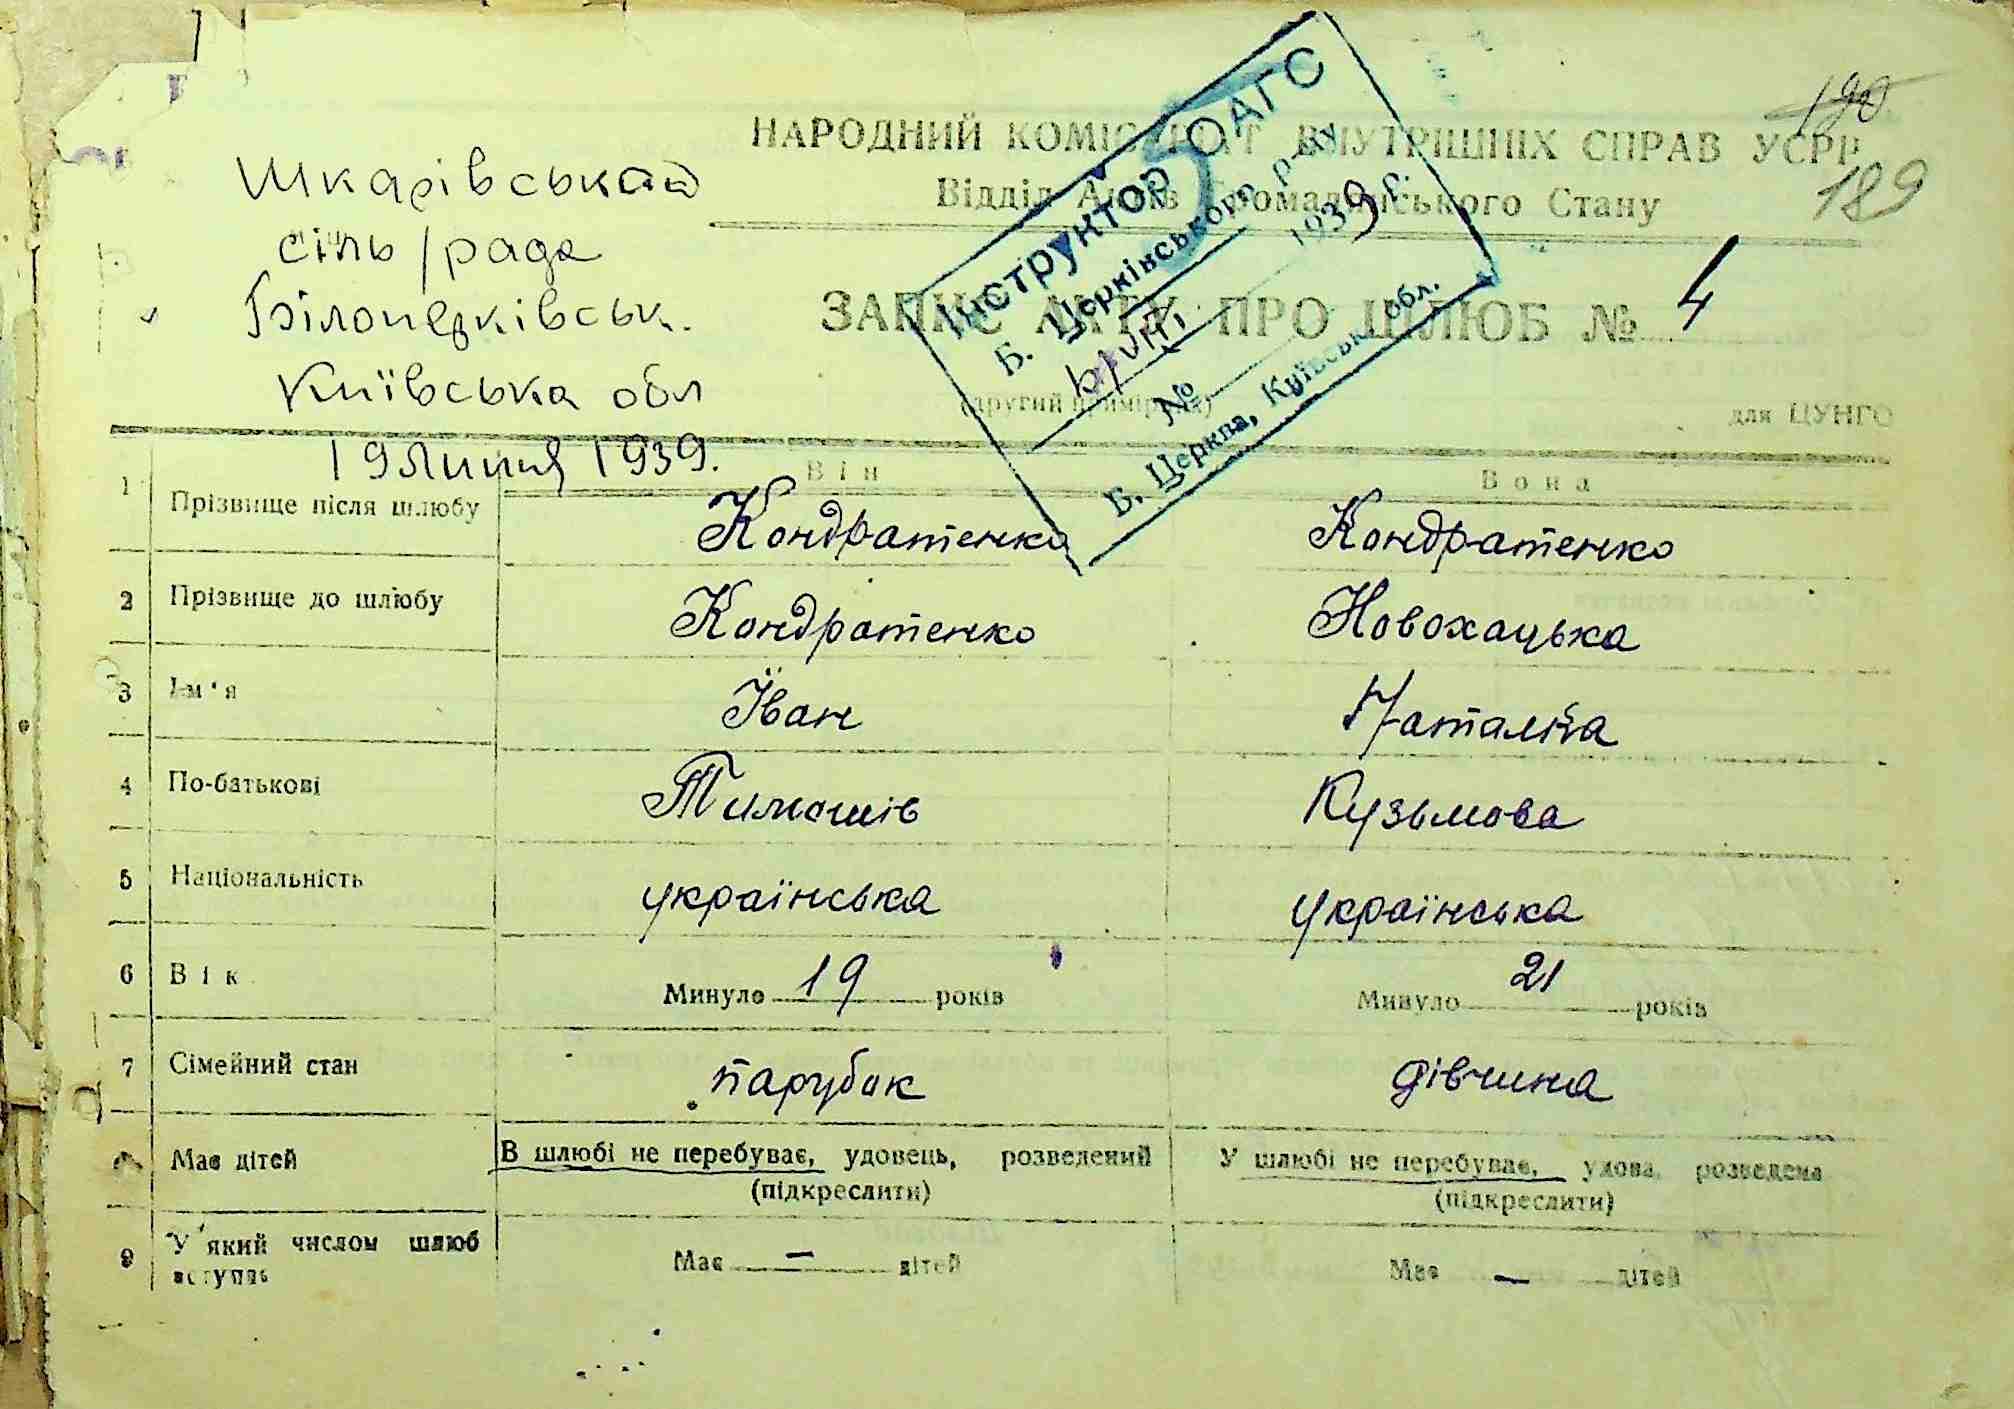 190
189
НАРОДНИЙ КОМІСАРІАТ ВНУТРІШНІХ СПРАВ УСРР
Відділ Актів Громадянського Стану
Шкарівська
сіль/рада
Білоцерківськ.
Київська обл
19 липня 1939.
ЗАПИС АКТУ ПРО ШЛЮБ № 4
(другий примірник)
для ЦУНГО
Інструктор ОАГС
Б. Церківського р-ну
VIII 1939 р.
№
Б. Церква, Київськ. обл.
Він Вона
1 Прізвище після шлюбу Кондратенко Кондратенко
2 Прізвище до шлюбу Кондратенко Новохацька
3 Ім'я Іван Наталія
4 По-батькові Тимошів Кузьмова
5 Національність українська українська
6 Вік Минуло 19 років Минуло 21 років
7 Сімейний стан парубок дівчина
Має дітей В шлюбі не перебуває, удовець, розведений У шлюбі не перебуває, удова, розведена
(підкреслити) (підкреслити)
9 У який числом шлюб вступає Має — дітей Має — дітей